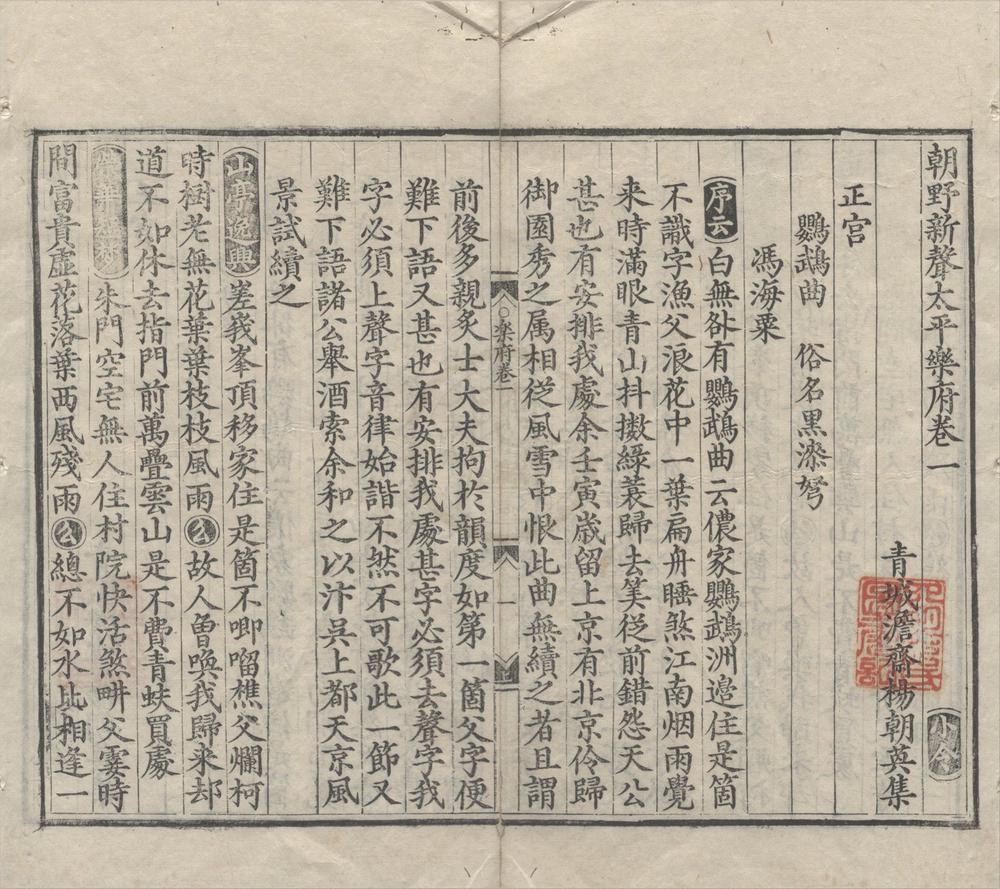 朝野新聲太平樂府卷一
小令
青城澹齋楊朝英集
正宫
鸚鵡曲 俗名黑漆弩
馮海粟
序云白無咎有鸚鵡曲云儂家鸚鵡洲邉住是箇
不識字漁父浪花中一葉扁舟睡煞江南烟雨覺
来時滿眼青山抖擻綠蓑歸去筭従前錯怨天公
甚也有安排我處余壬寅歳留上京有北京伶歸
御園秀之属相従風雪中恨此曲無續之者且謂
楽府卷一
一
前後多親炙士大夫拘於韻度如第一箇父字便
難下語又甚也有安排我處甚字必須去聲字我
字必須上聲字音律始諧不然不可歌此一節又
難下語諸公舉酒索余和之以汴吳上都天京風
景試續之
山亭逸興嵳峩峯頂移家住是箇不唧嚠樵父爛柯
時樹老無花葉葉枝枝風雨幺故人曾喚我歸来却
道不如休去指門前萬疊雲山是不費青蚨買處
朱門空宅無人住村院快活煞畊父霎時
間富貴虚花落葉西風殘雨幺緫不如水北相逢一